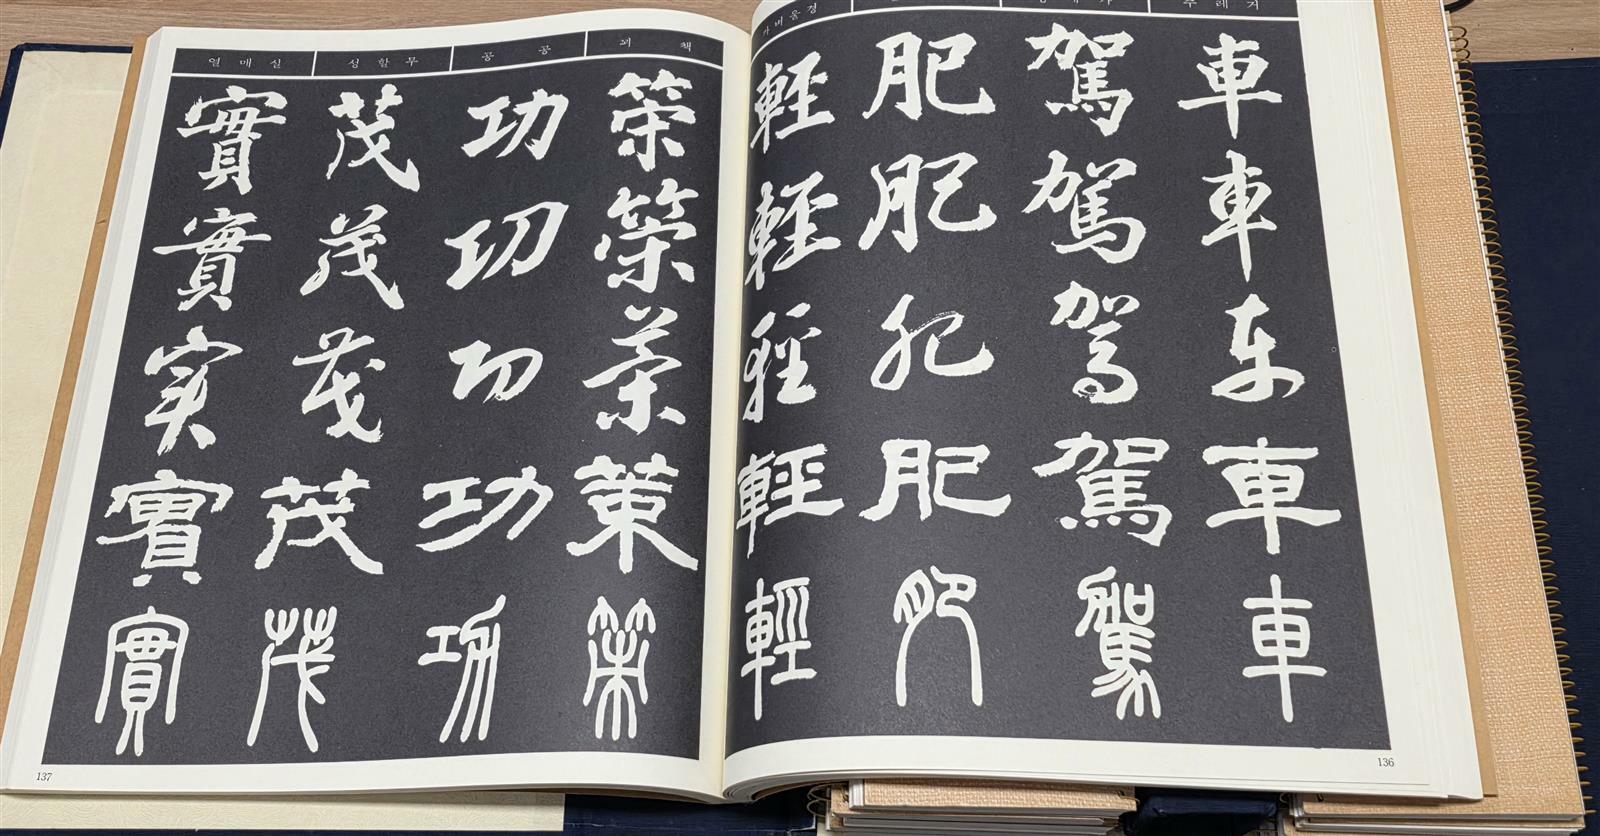 수레거
車車车車車
駕駕駕駕駕
肥肥肥肥肥
가벼울경
輕輕輕輕輕
136
꾀 책
策策策策策
공 공
功功功功功
성할무
茂茂茂茂茂
열매실
實實実實實
137